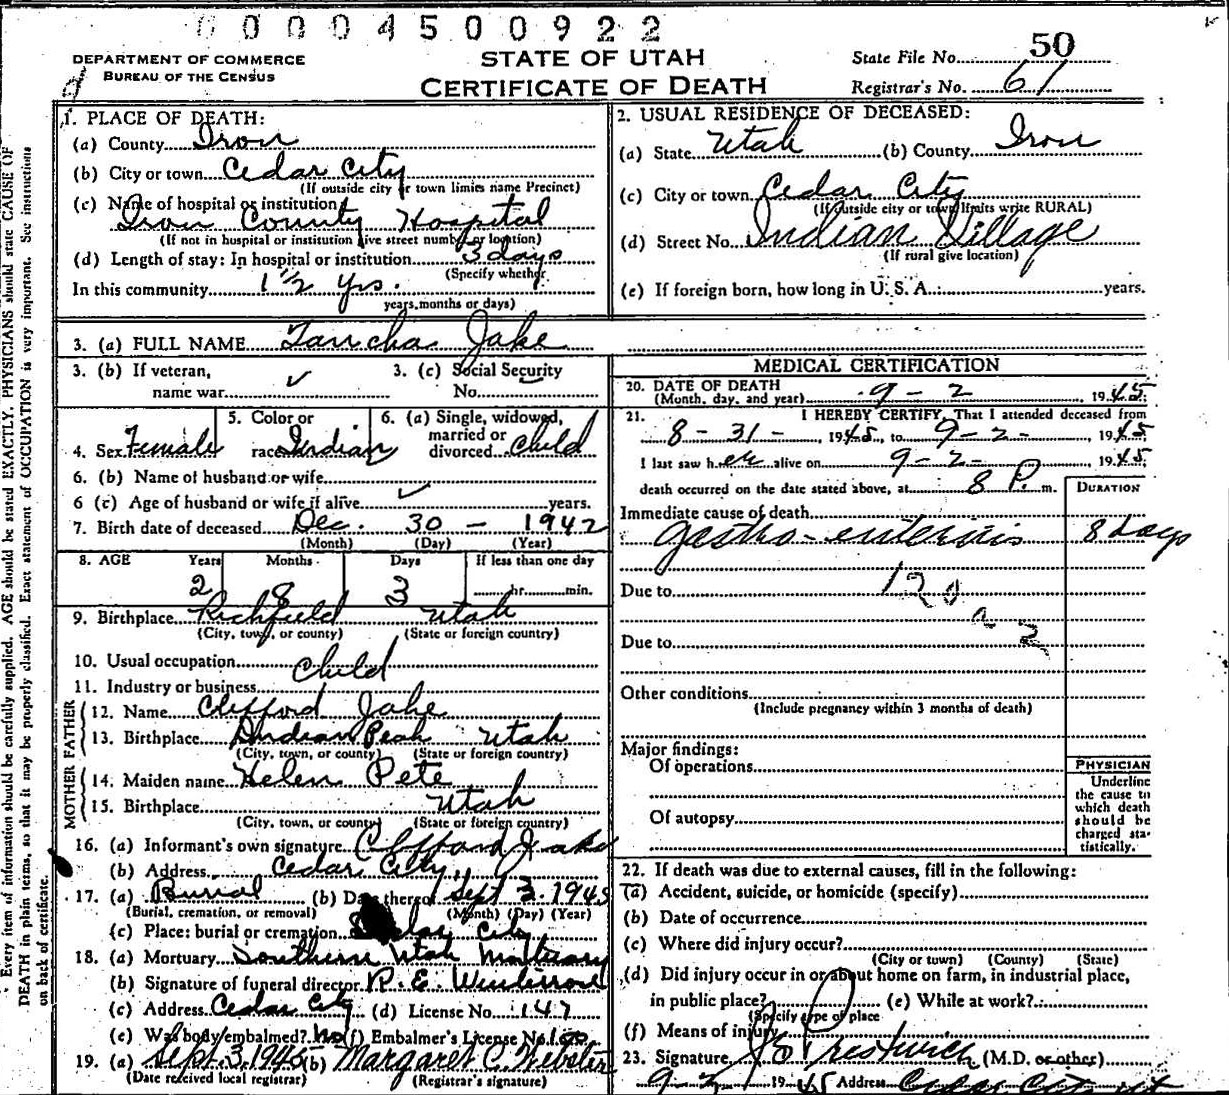 0000450 0922
DEPARTMENT OF COMMERCE
BUREAU OF THE CENSUS
STATE OF UTAH
CERTIFICATE OF DEATH
State File No. 50
Registrar's No. 61
Every item of information should be carefully supplied. AGE should be stated EXACTLY. PHYSICIANS should state CAUSE OF
DEATH in plain terms, so that it may be properly classified. Exact statement of OCCUPATION is very important. See instructions
on back of certificate.
1. PLACE OF DEATH:
(a) County Iron
(b) City or town Cedar City
(If outside city or town limits name Precinct)
(c) Name of hospital or institution
Iron County Hospital
(If not in hospital or institution give street number or location)
(d) Length of stay: In hospital or institution 3 days
(Specify whether
In this community 1 1/2 yrs.
years, months or days)
2. USUAL RESIDENCE OF DECEASED:
(a) State Utah (b) County Iron
(c) City or town Cedar City
(If outside city or town limits write RURAL)
(d) Street No. Indian Village
(If rural give location)
(e) If foreign born, how long in U. S. A.: years.
3. (a) FULL NAME Jake
3. (b) If veteran, name war ✓
3. (c) Social Security No.
4. Sex Female
5. Color or race Indian
6. (a) Single, widowed, married or divorced child
6. (b) Name of husband or wife
6 (c) Age of husband or wife if alive ✓ years.
7. Birth date of deceased Dec. 30 - 1942
(Month) (Day) (Year)
8. AGE Years Months Days If less than one day
2 8 3 hr. min.
9. Birthplace Richfield Utah
(City, town, or county) (State or foreign country)
10. Usual occupation Child
11. Industry or business
FATHER
12. Name Clifford Jake
13. Birthplace Indian Peak Utah
(City, town, or county) (State or foreign country)
MOTHER
14. Maiden name Helen Pete
15. Birthplace Utah
(City, town, or county) (State or foreign country)
16. (a) Informant's own signature Clifford Jake
(b) Address Cedar City,
17. (a) Burial (b) Date thereof Sept 3. 1945
(Burial, cremation, or removal) (Month) (Day) (Year)
(c) Place: burial or cremation Cedar City
18. (a) Mortuary Southern Utah Mortuary
(b) Signature of funeral director R. E.
(c) Address Cedar City (d) License No. 147
(e) Was body embalmed? No (f) Embalmer's License No.
19. (a) Sept. 3, 1945 (b) Margaret C. Webster
(Date received local registrar) (Registrar's signature)
MEDICAL CERTIFICATION
20. DATE OF DEATH
(Month, day, and year) 9 - 2 1945
21. I HEREBY CERTIFY, That I attended deceased from
8 - 31 - , 1945, to 9 - 2 - , 1945
I last saw her alive on 9 - 2 - 1945
death occurred on the date stated above, at 8 P. m.
DURATION
Immediate cause of death
gastro-enteritis 8 days
Due to 120
a 2
Due to
Other conditions
(Include pregnancy within 3 months of death)
Major findings:
Of operations
Of autopsy
PHYSICIAN
Underline
the cause to
which death
should be
charged sta-
tistically.
22. If death was due to external causes, fill in the following:
(a) Accident, suicide, or homicide (specify)
(b) Date of occurrence
(c) Where did injury occur?
(City or town) (County) (State)
(d) Did injury occur in or about home on farm, in industrial place,
in public place? (e) While at work?
(Specify type of place
(f) Means of injury
23. Signature Prestwich (M.D. or other)
9 - 2 1945 Address Cedar City ut